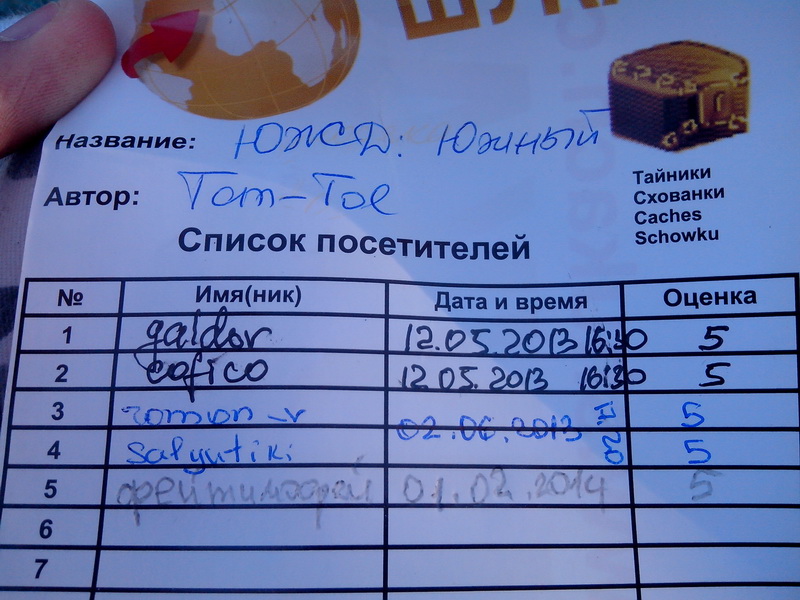 ШУКА
Название: ЮЖСД: Южный
Автор: Tom-Toe
Тайники
Схованки
Caches
Schowku
Список посетителей
№ Имя(ник) Дата и время Оценка
1 galdor 12.05.2013 16:30 5
2 eafico 12.05.2013 16:30 5
3 roman_v 02.06.2013 5
4 salyutiki 5
5 01.02.2014 5
6
7